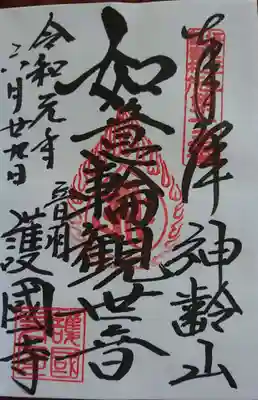 奉拝 神齢山
如意輪観世音
音羽 護國寺
令和元年
六月廿九日
護國寺